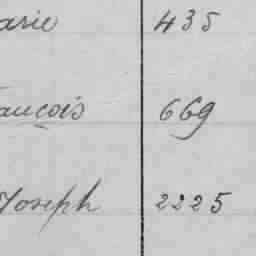 arie 435
ançois 669
Joseph 2225